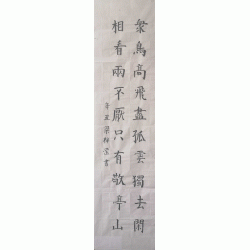 衆鳥高飛盡孤雲獨去閒
相看兩不厭只有敬亭山
辛丑梁